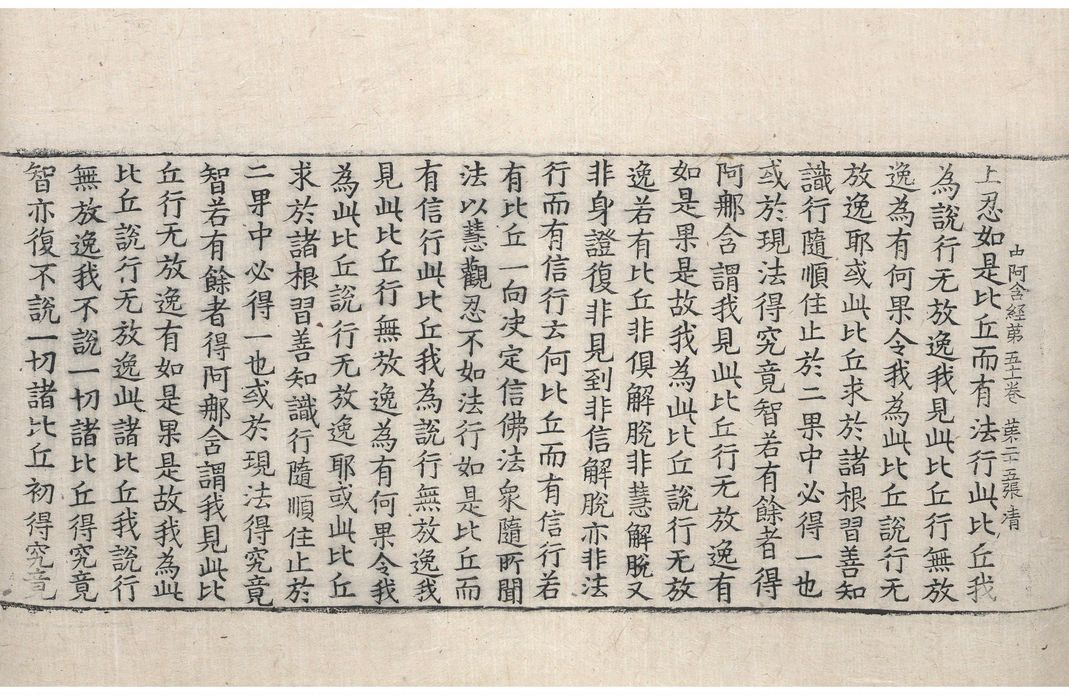 中阿含經第五十一卷 第二十五張 清
上忍如是比丘而有法行此比丘我
為說行无放逸我見此比丘行無放
逸為有何果令我為此比丘說行无
放逸耶或此比丘求於諸根習善知
識行隨順住止於二果中必得一也
或於現法得究竟智若有餘者得
阿那含謂我見此比丘行无放逸有
如是果是故我為此比丘說行无放
逸若有比丘非俱解脫非慧解脫又
非身證復非見到非信解脫亦非法
行而有信行云何比丘而有信行若
有比丘一向决定信佛法衆隨所聞
法以慧觀忍不如法行如是比丘而
有信行此比丘我為說行無放逸我
見此比丘行無放逸為有何果令我
為此比丘說行无放逸耶或此比丘
求於諸根習善知識行隨順住止於
二果中必得一也或於現法得究竟
智若有餘者得阿那含謂我見此比
丘行无放逸有如是果是故我為此
比丘說行无放逸此諸比丘我說行
無放逸我不說一切諸比丘得究竟
智亦復不說一切諸比丘初得究竟